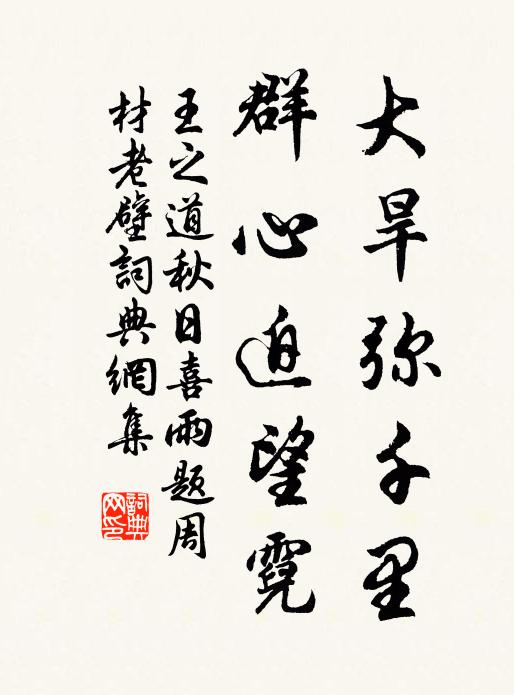 大旱弥千里
群心迫望霓
王之道秋日喜雨题周
材老壁詞典網集
詞典网印